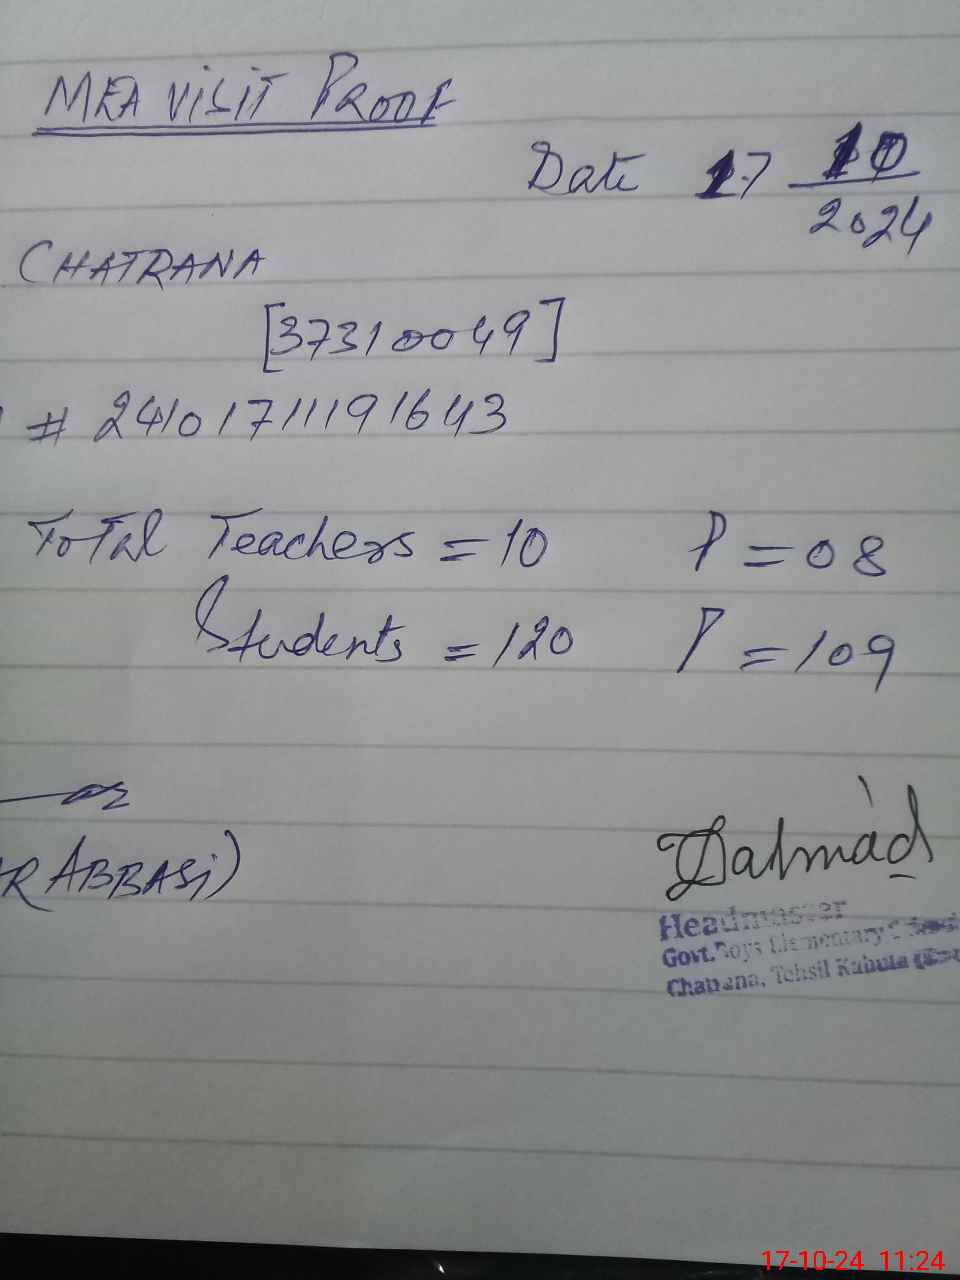 MEA VISIT PROOF
Date 17 10/2024
CHATRANA
[37310049]
# 24101711191643
Total Teachers = 10 P = 08
Students = 120 P = 109
R ABBASI)
Headmaster
Govt. Boys Elementary
Chatrana, Tehsil Kahuta
17-10-24 11:24